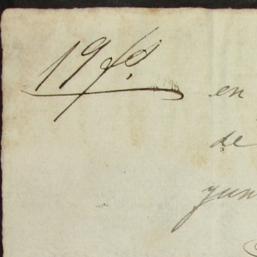 19 fs
en
de
yun